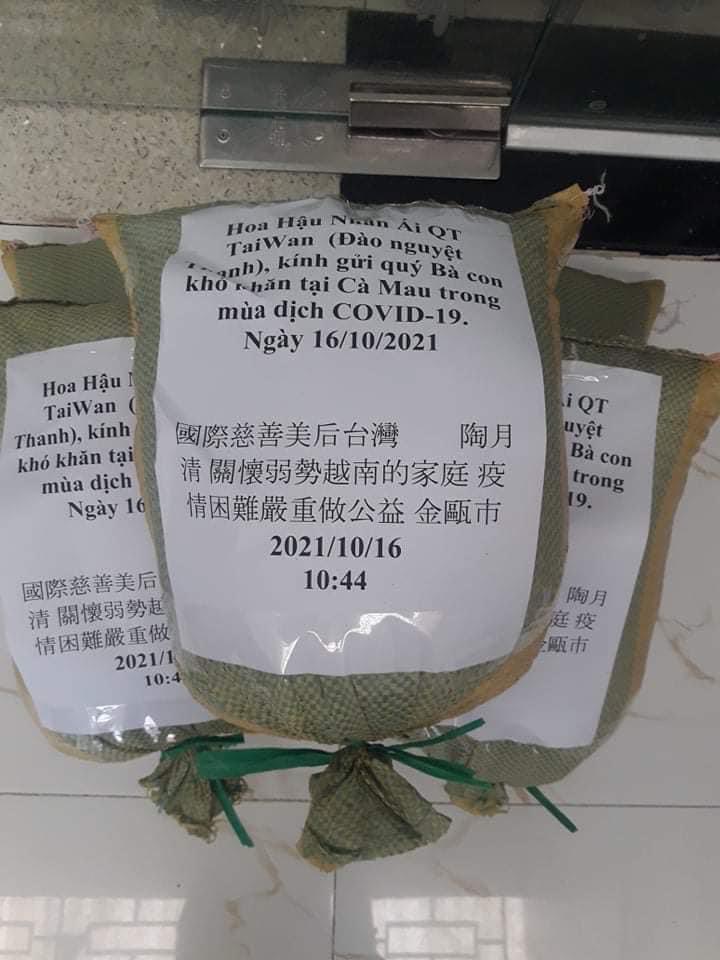 Hoa Hậu Nhân Ái QT
TaiWan (Đào nguyệt
Thanh), kính gửi quý Bà con
khó khăn tại Cà Mau trong
mùa dịch COVID-19.
Ngày 16/10/2021
國際慈善美后台灣 陶月
清 關懷弱勢越南的家庭 疫
情困難嚴重做公益 金甌市
2021/10/16
10:44
Hoa Hậu
TaiWan (
Thanh), kính
khó khăn tại
mùa dịch
Ngày 16
國際慈善美后
清 關懷弱勢越
情困難嚴重做
2021/1
10:4
Ái QT
uyệt
Bà con
trong
19.
陶月
庭 疫
金甌市